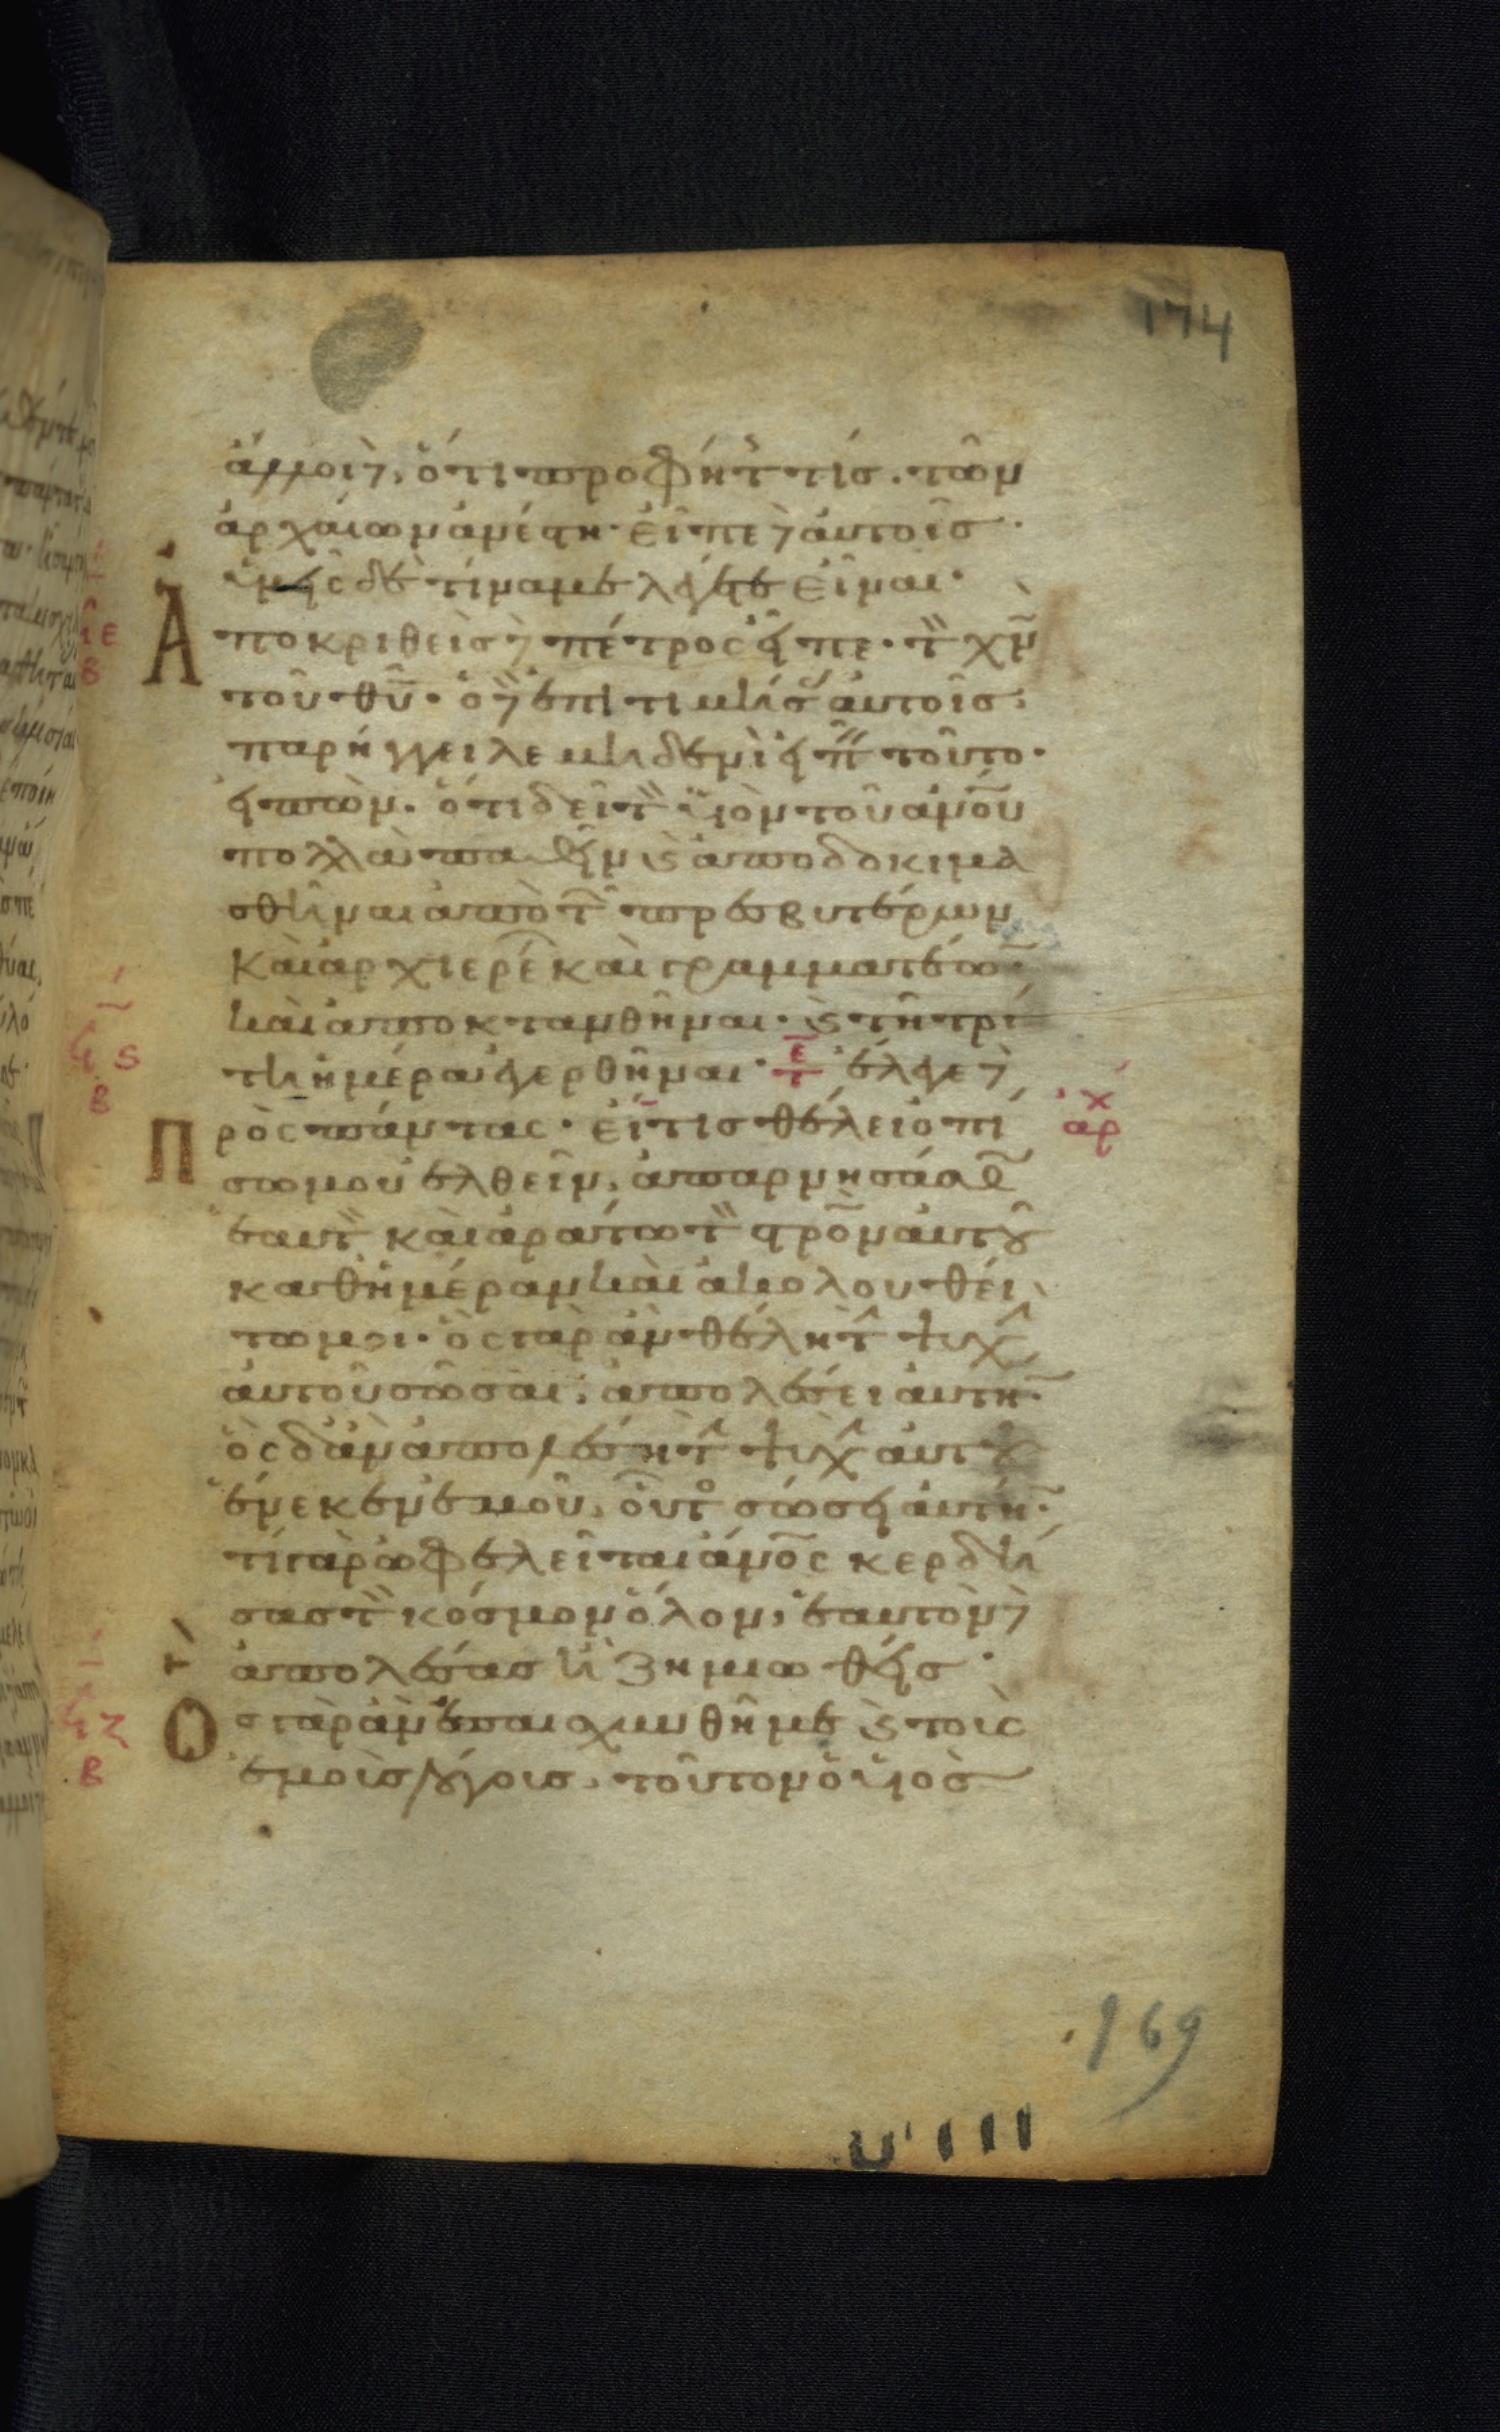 174
ἄλλοι δὲ, ὅτι προφήτης τίς τῶν
ἀρχαίων ἀνέστη· εἶπε δὲ αὐτοῖς·
ὑμεῖς δὲ τίνα με λέγετε εἶναι·
Ἀποκριθεὶς δὲ πέτρος εἶπε· τὸν χν̅
τοῦ θυ̅· ὁ δὲ ἐπιτιμήσας αὐτοῖς
παρήγγειλε μηδενὶ εἰπεῖν τοῦτο·
εἰπὼν· ὅτι δεῖ τὸν υἱὸν τοῦ ἀνου̅
πολλὰ παθεῖν καὶ ἀποδοκιμα
σθῆναι ἀπὸ τῶν πρεσβυτέρων
καὶ ἀρχιερέων καὶ γραμματέων·
καὶ ἀποκτανθῆναι· καὶ τῆ τρί
τη ἡμέρα ἐγερθῆναι· τε ἔλεγε δὲ
Πρὸς πάντας· εἴ τις θέλει ὀπί
αρχ
σω μου ἐλθεῖν, ἀπαρνησάσθω
ἑαυτὸν καὶ ἀράτω τὸν στρο̅ν αὐτοῦ
καθ ἡμέραν καὶ ἀκολουθεί
τω μοι· ὃς γὰρ ἂν θέλη τὴν ψυχὴν
αὐτοῦ σῶσαι, ἀπολέσει αὐτήν·
ὃς δ ἂν ἀπολέση τὴν ψυχὴν αὐτοῦ
ἕνεκεν ἐμοῦ, οὗτος σώσει αὐτήν·
τί γὰρ ὠφελεῖται ἄνο̅ς κερδή
σας τὸν κόσμον ὅλον, ἑαυτὸν δὲ
ἀπολέσας ἢ ζημιωθεὶς·
Ὃς γὰρ ἂν ἐπαισχυνθῆ με καὶ τοὺς
ἐμοὺς λόγους, τοῦτον ὁ υἱὸς
169